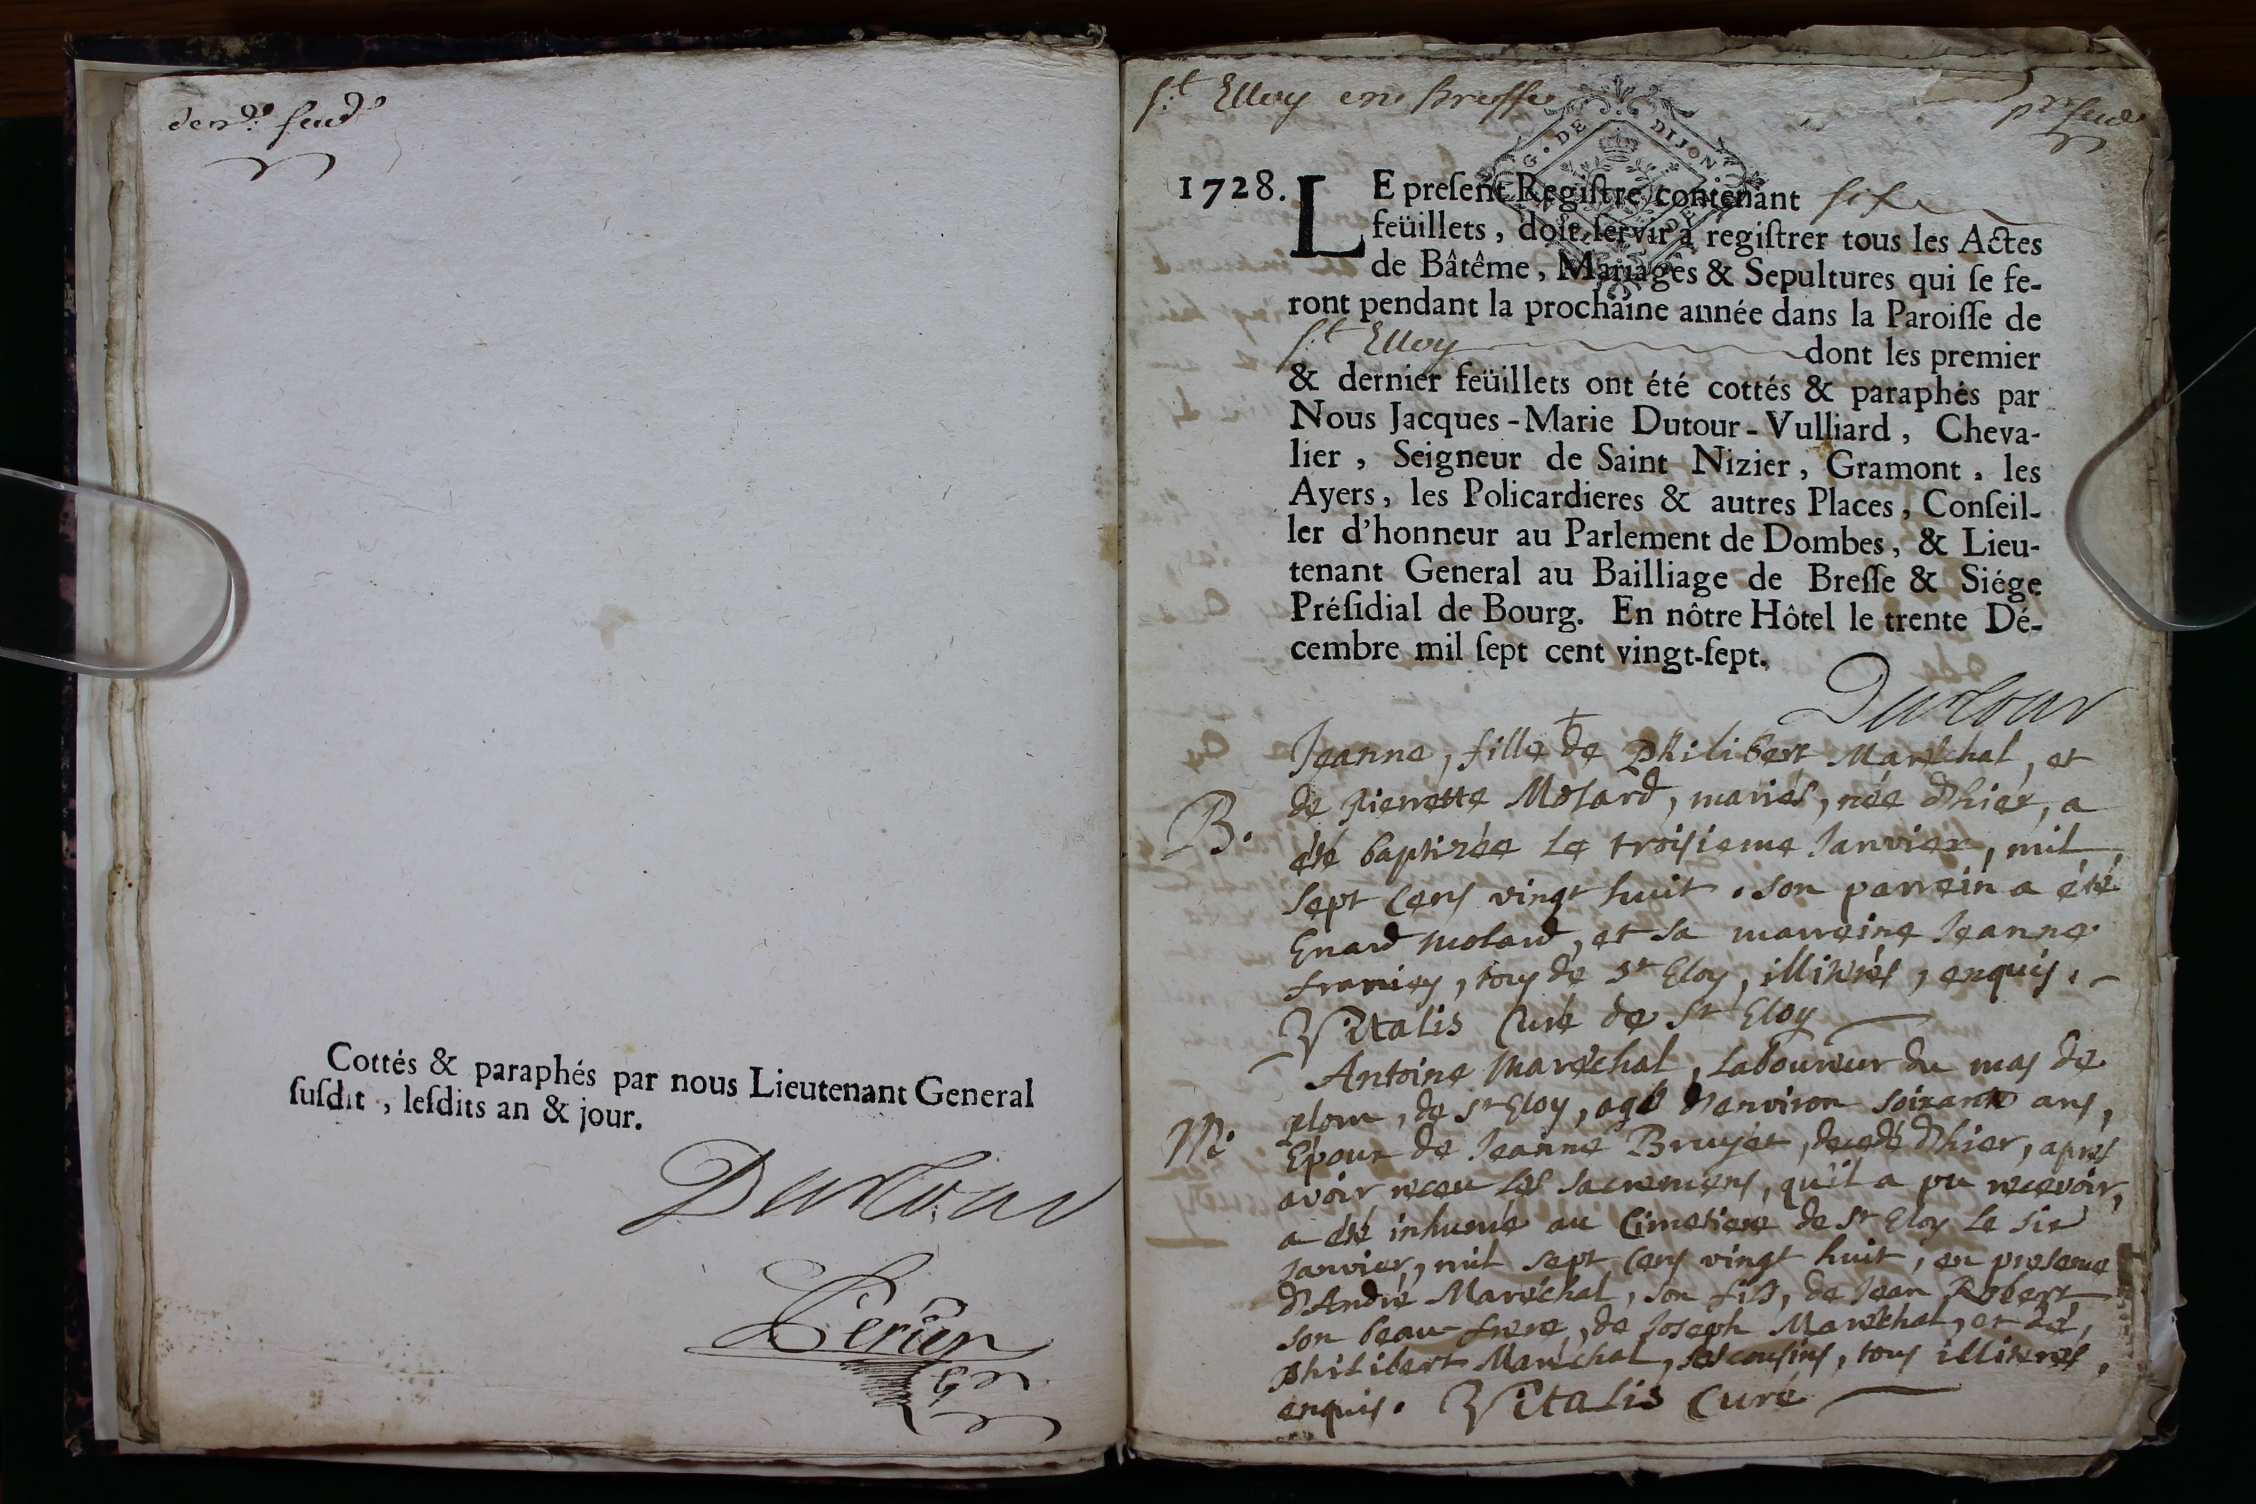 dern.er feuil.
Cottés & paraphés par nous Lieutenant General
ſuſdit, leſdits an & jour.
Dutour
Perier
St Elloy en Bresse
pr. feuil.
G. DE DIJON
1728.
LE preſent Regiſtre contenant six
feüillets, doit ſervir à regiſtrer tous les Actes
de Bâtême, Mariages & Sepultures qui ſe fe-
ront pendant la prochaine année dans la Paroiſſe de
St Elloy dont les premier
& dernier feüillets ont été cottés & paraphés par
Nous Jacques-Marie Dutour-Vulliard, Cheva-
lier, Seigneur de Saint Nizier, Gramont, les
Ayers, les Policardieres & autres Places, Conſeil-
ler d'honneur au Parlement de Dombes, & Lieu-
tenant General au Bailliage de Breſſe & Siége
Préſidial de Bourg. En nôtre Hôtel le trente Dé-
cembre mil ſept cent vingt-ſept.
Dutour
Jeanne, fille de Philibert Maréchal, et
B. de pierrette Molard, mariés, née d'hier, a
été baptizée le troisieme Janvier, mil
sept cens vingt huit. son parrein a été
Enard molard, et sa marreine Jeanne
, tous de St Eloy, illitérés, enquis.
Vitalis Curé de St Eloy
Antoine Maréchal, laboureur du mas de
plom, de St Eloy, agé d'environ soixante ans,
M. Epoux de Jeanne Bruyer, decedé d'hier, apres
avoir receu les sacremens, qu'il a pu recevoir,
a été inhumé au Cimetiere de St Eloy le six
janvier, mil sept cens vingt huit, en presence
d'André Maréchal, son fils, de Jean Robert
son beau-frere, de Joseph Maréchal, et de
philibert Maréchal, ses cousins, tous illiterés,
enquis. Vitalis Curé